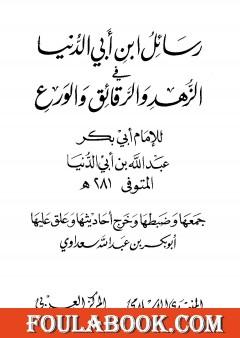 رسائل ابن أبي الدنيا
في
الزهد والرقائق والورع
للإمام أبي بكر
عبد الله بن أبي الدنيا
المتوفى ٢٨١ هـ
جمعها وضبطها وخرج أحاديثها وعلق عليها
أبو بكر بن عبد الله سعداوي
FOULABOOK.COM